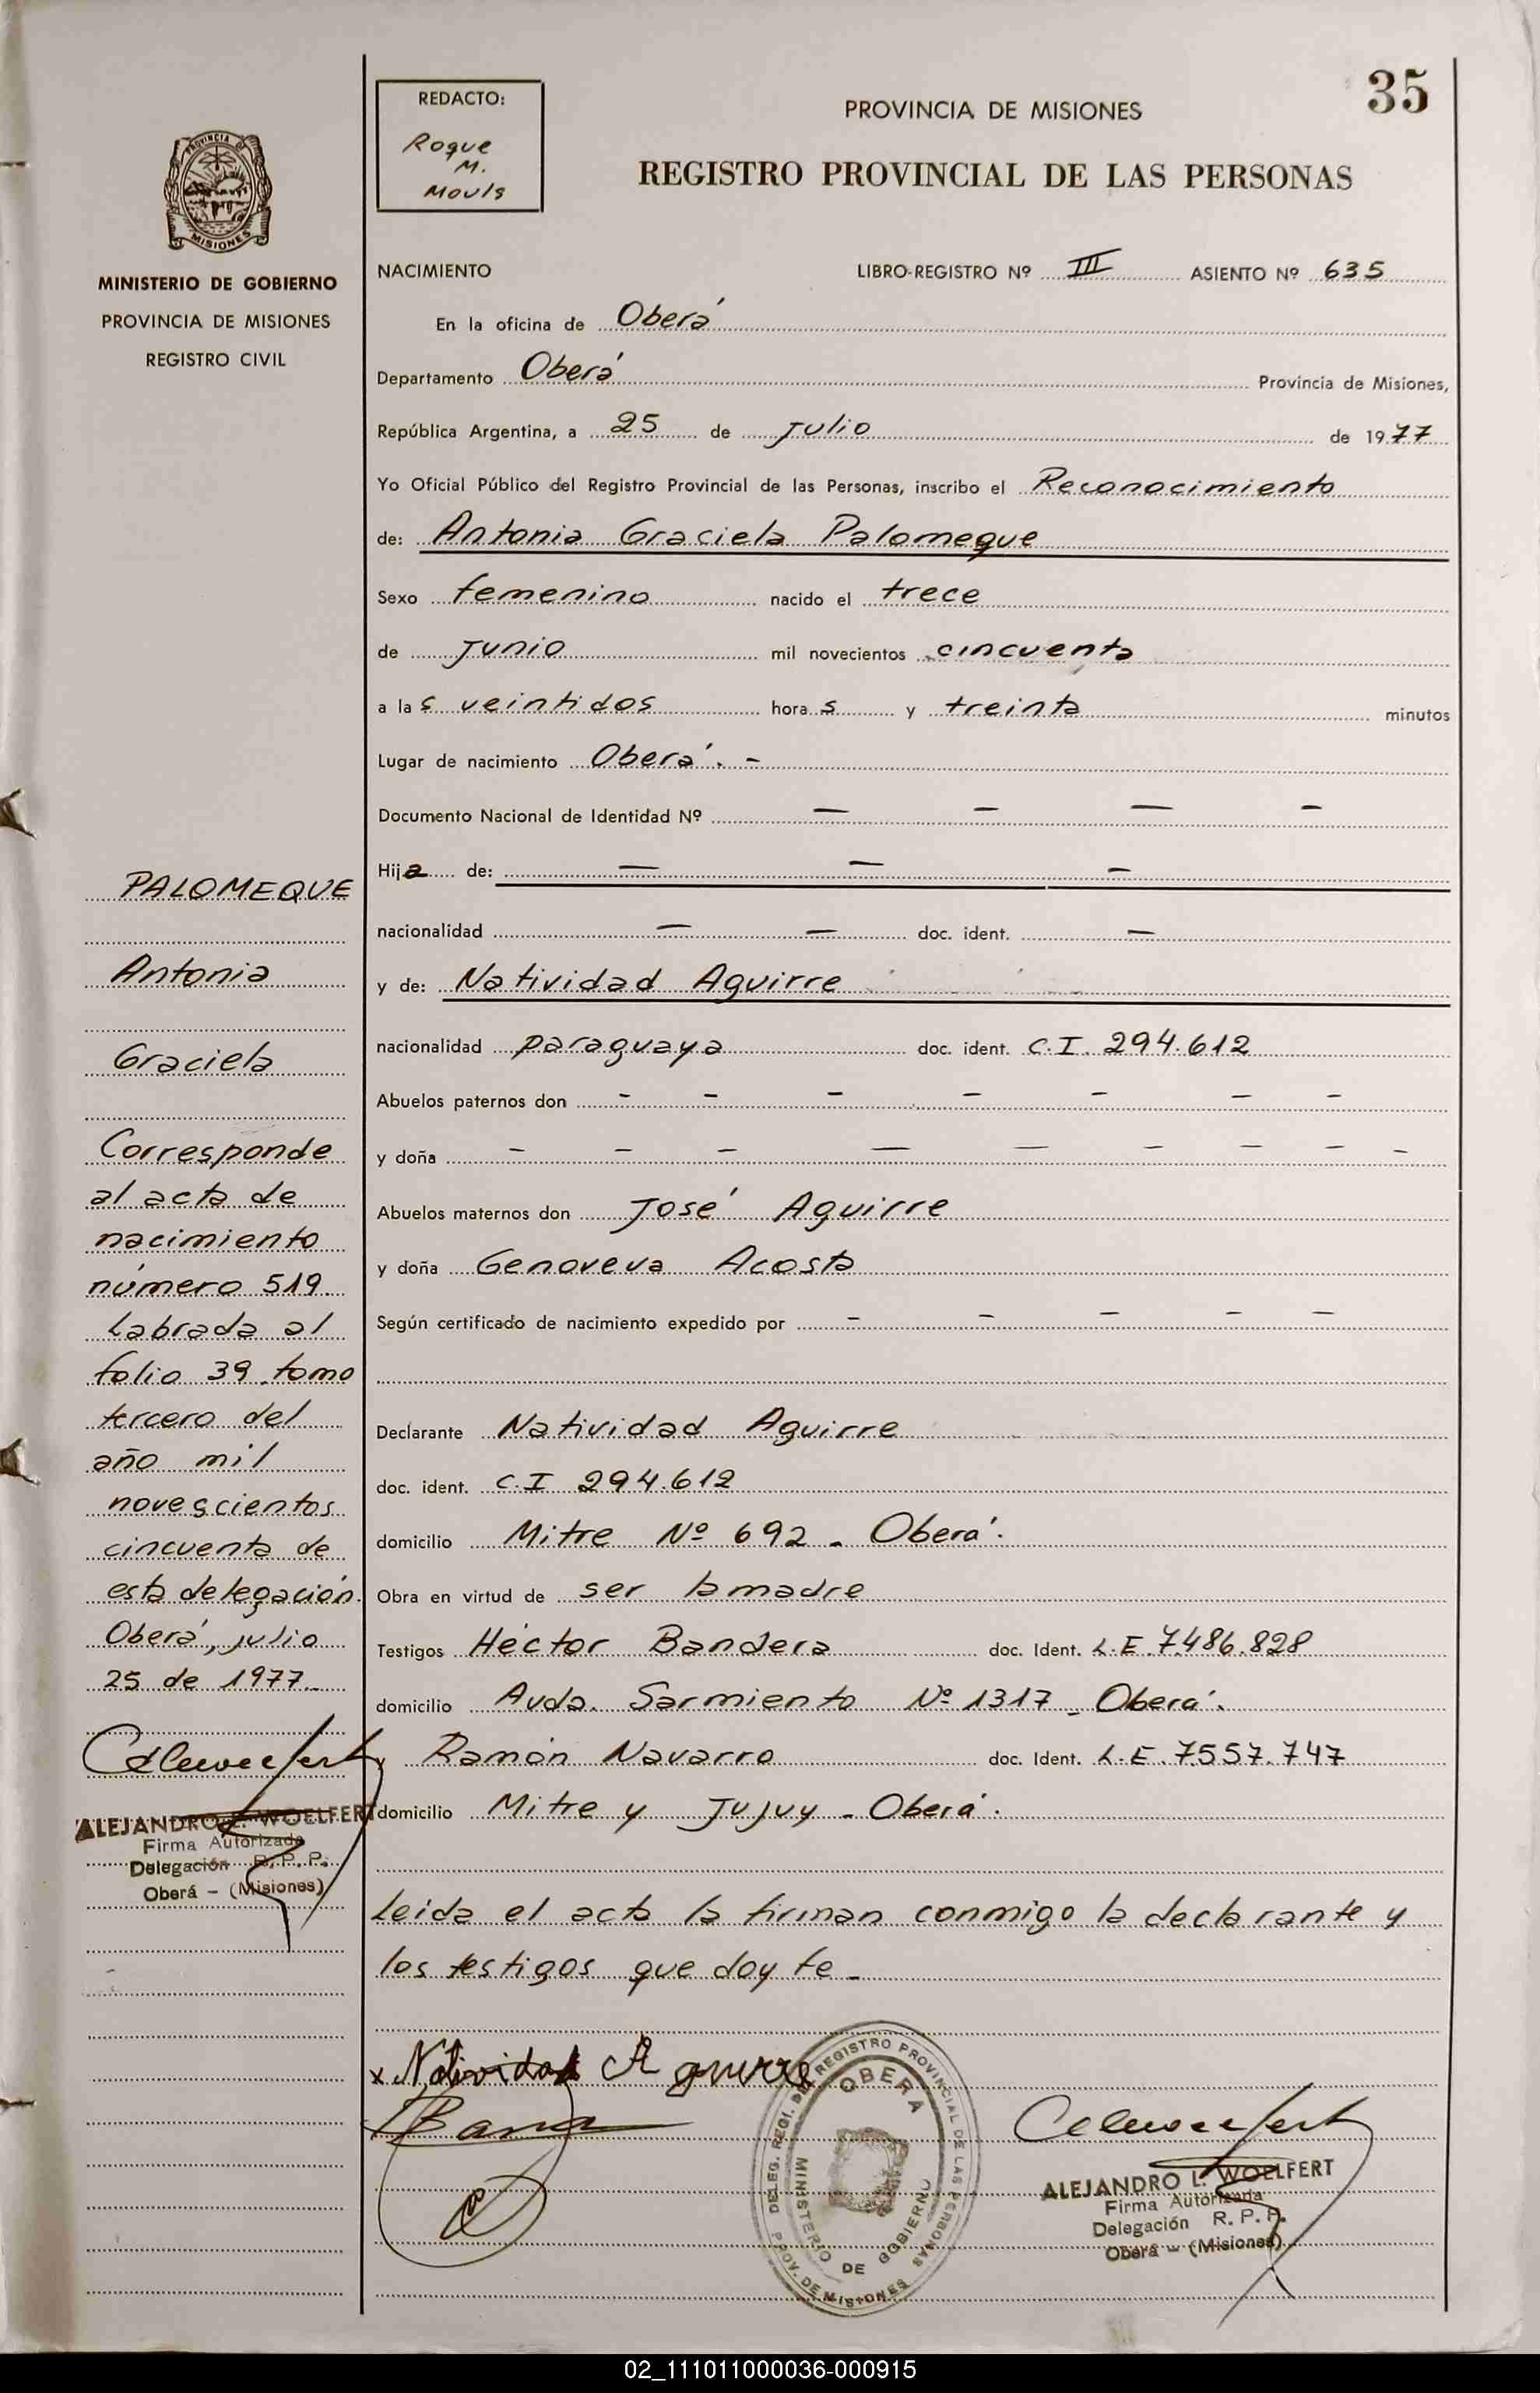 35
REDACTO:
Roque
M.
Mouls
PROVINCIA DE MISIONES
REGISTRO PROVINCIAL DE LAS PERSONAS
PROVINCIA DE
MISIONES
MINISTERIO DE GOBIERNO
PROVINCIA DE MISIONES
REGISTRO CIVIL
NACIMIENTO LIBRO-REGISTRO Nº III ASIENTO Nº 635
En la oficina de Oberá
Departamento Oberá Provincia de Misiones,
República Argentina, a 25 de Julio de 1977
Yo Oficial Público del Registro Provincial de las Personas, inscribo el Reconocimiento
de: Antonia Graciela Palomeque
Sexo femenino nacido el trece
de Junio mil novecientos cincuenta
a las veintidos horas y treinta minutos
Lugar de nacimiento Oberá. -
Documento Nacional de Identidad Nº — — — —
Hija de: — — —
nacionalidad — — doc. ident. —
y de: Natividad Aguirre
nacionalidad paraguaya doc. ident. C.I. 294.612
Abuelos paternos don - - - - - - -
y doña - - - - - - - - -
Abuelos maternos don José Aguirre
y doña Genoveva Acosta
Según certificado de nacimiento expedido por - - - - -
Declarante Natividad Aguirre
doc. ident. C.I 294.612
domicilio Mitre Nº 692 - Oberá.
Obra en virtud de ser la madre
Testigos Héctor Bandera doc. Ident. L.E. 7.486.828
domicilio Avda. Sarmiento Nº 1317 - Oberá.
y Ramón Navarro doc. Ident. L.E. 7.557.747
domicilio Mitre y Jujuy - Oberá.
Leida el acta la firman conmigo la declarante y
los testigos que doy fe -
PALOMEQUE
Antonia
Graciela
Corresponde
al acta de
nacimiento
número 519
Labrada al
folio 39 tomo
tercero del
año mil
novescientos
cincuenta de
esta delegación.
Oberá, julio
25 de 1977.-
ALEJANDRO L. WOELFERT
Firma Autorizada
Delegación R. P. P.
Oberá - (Misiones)
x Natividad Aguirre
DELEG. REGI. DEL REGISTRO PROVINCIAL DE LAS PERSONAS
OBERA
MINISTERIO DE GOBIERNO
PROV. DE MISIONES
ALEJANDRO L. WOELFERT
Firma Autorizada
Delegación R. P. P.
Oberá - (Misiones)
02_111011000036-000915